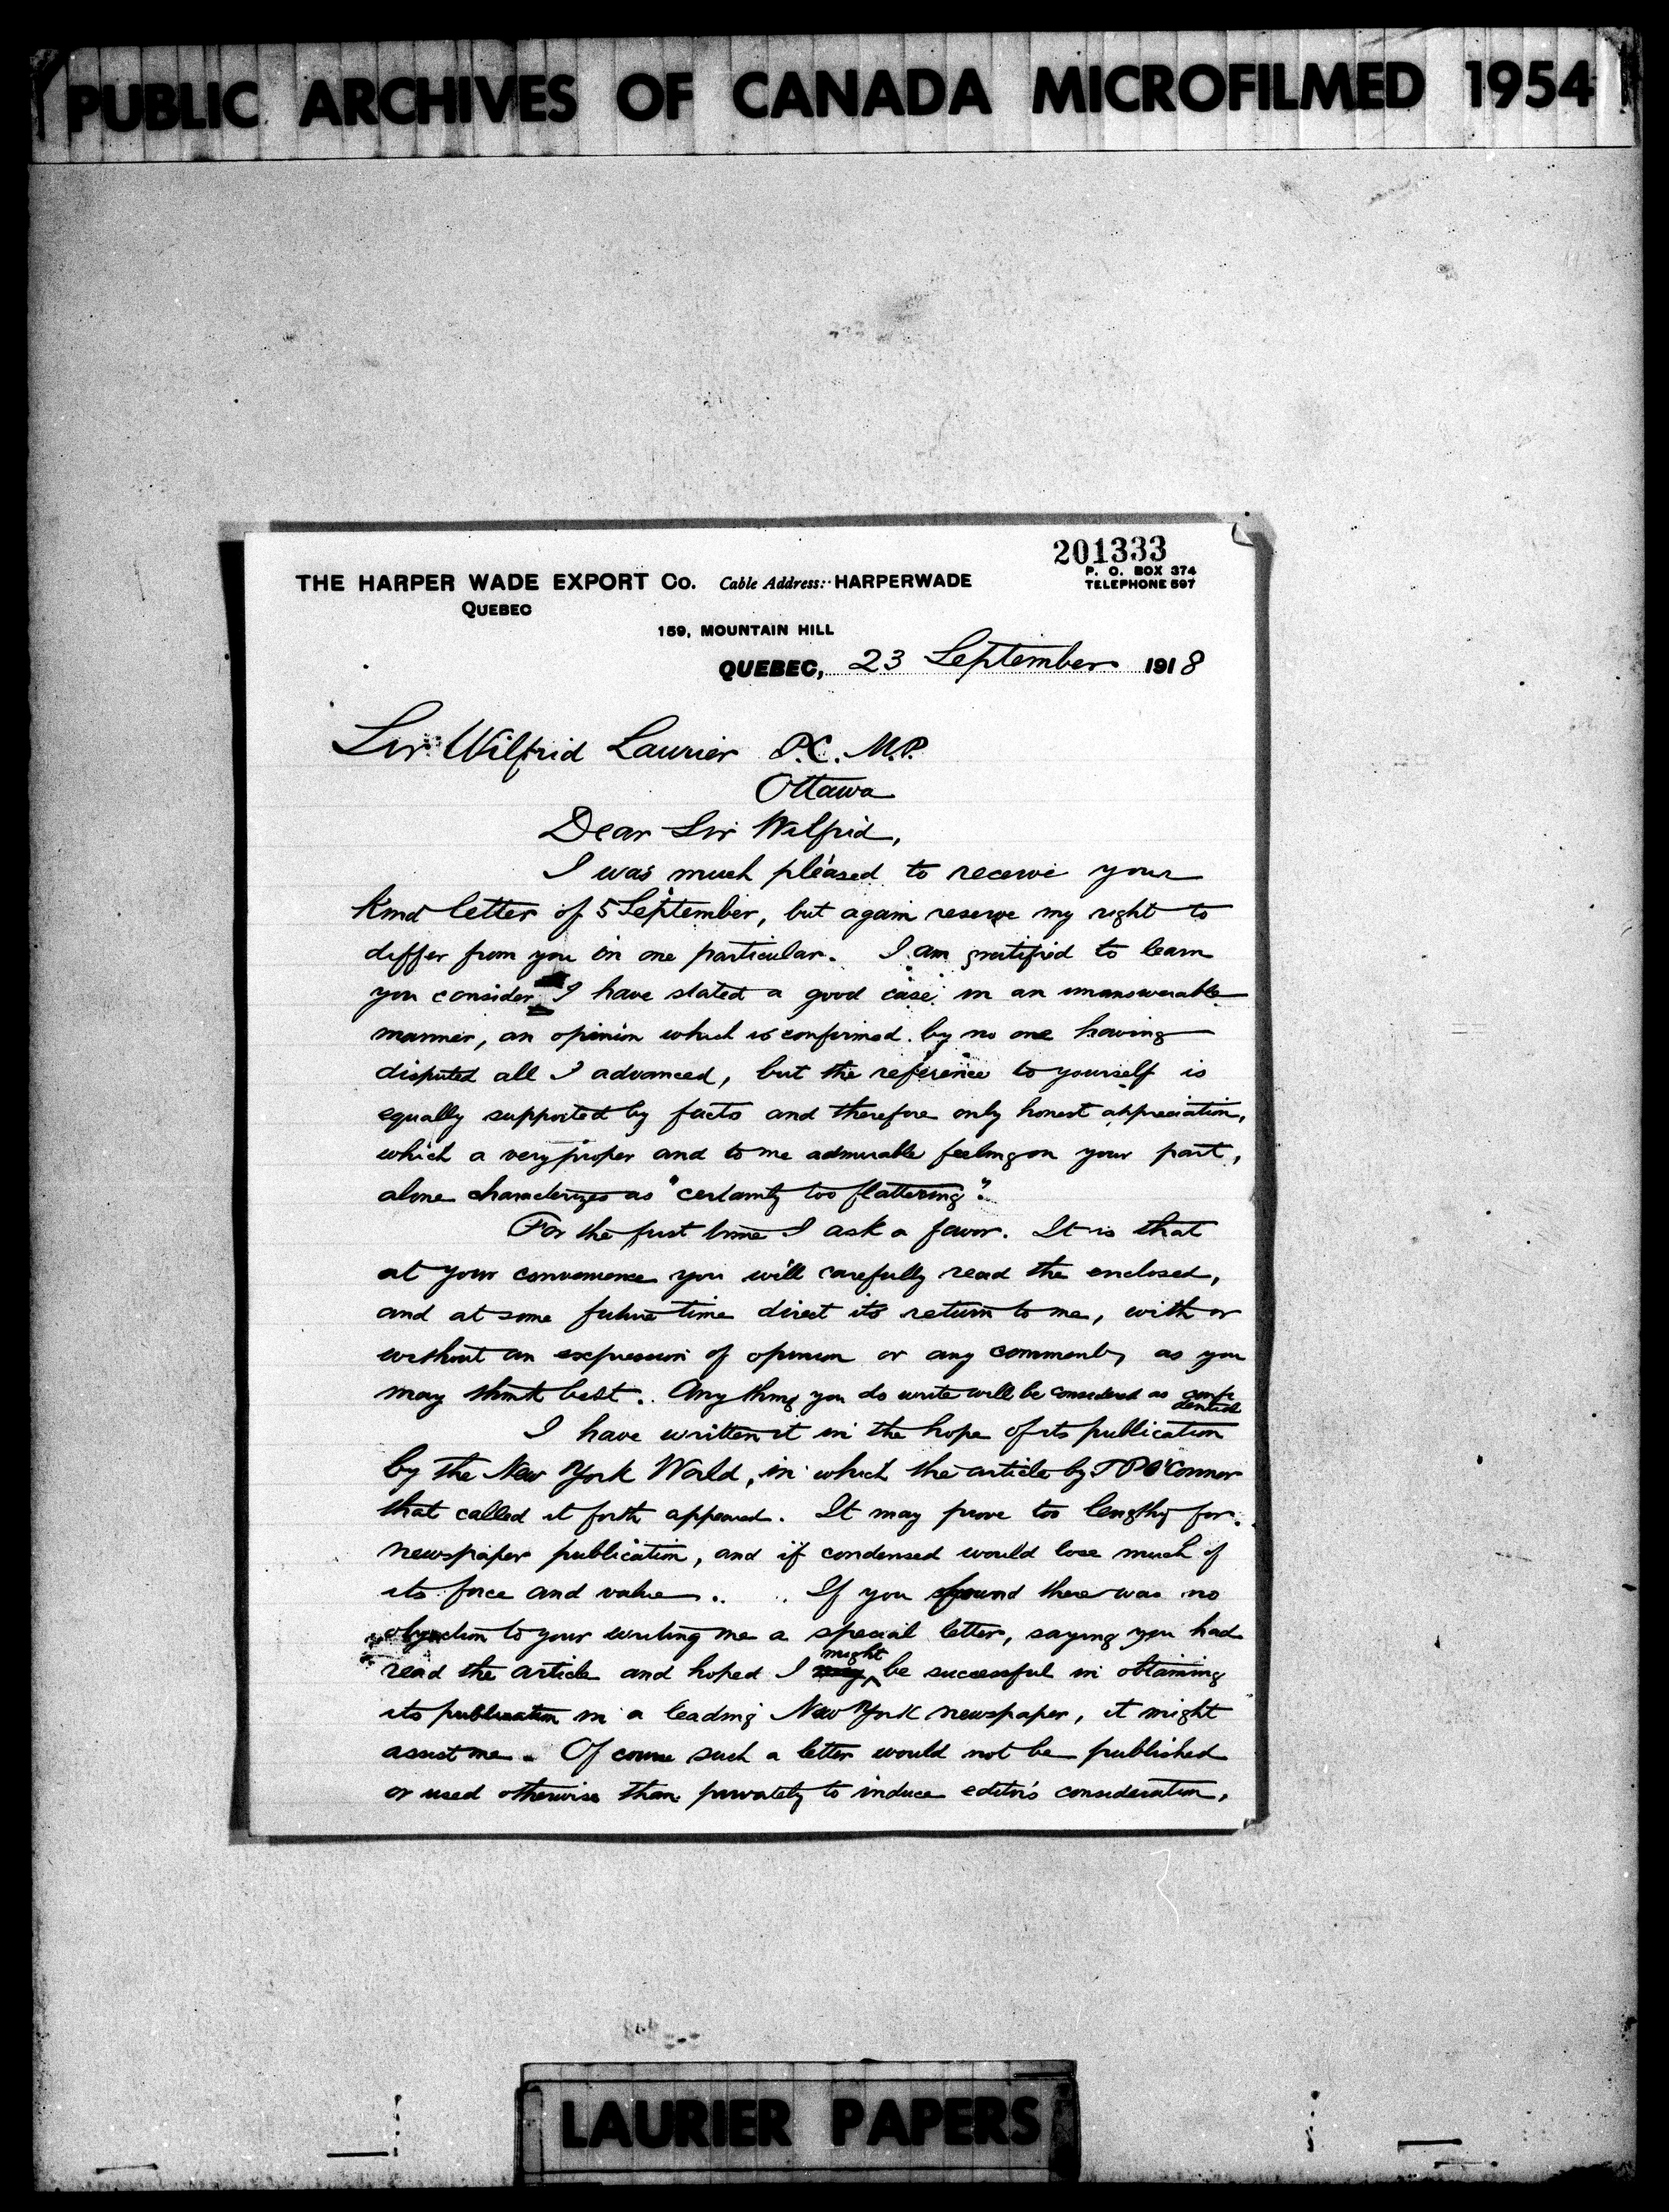 PUBLIC ARCHIVES OF CANADA MICROFILMED 1954
201333
THE HARPER WADE EXPORT Co. Cable Address: HARPERWADE
P. O. BOX 374
TELEPHONE 597
QUEBEC
159, MOUNTAIN HILL
QUEBEC, 23 September 1918
Sir Wilfrid Laurier P.C. M.P.
Ottawa
Dear Sir Wilfrid,
I was much pleased to receive your
kind letter of 5 September, but again reserve my right to
differ from you in one particular. I am gratified to learn
you consider I have stated a good case in an unanswerable
manner, an opinion which is confirmed by no one having
disputed all I advanced, but the reference to yourself is
equally supported by facts and therefore only honest appreciation,
which a very proper and to me admirable feeling on your part,
alone characterizes as "certainly too flattering".
For the first time I ask a favor. It is that
at your convenience you will carefully read the enclosed,
and at some future time direct its return to me, with or
without an expression of opinion or any comment, as you
may think best. Any thing you do write will be considered as confidential
I have written it in the hope of its publication
by the New York World, in which the article by T P O'Connor
that called it forth appeared. It may prove too lengthy for
newspaper publication, and if condensed would lose much of
its force and value. If you found there was no
objection to your writing me a special letter, saying you had
read the article and hoped I might be successful in obtaining
its publication in a leading New York newspaper, it might
assist me. Of course such a letter would not be published
or used otherwise than privately to induce editor's consideration,
LAURIER PAPERS